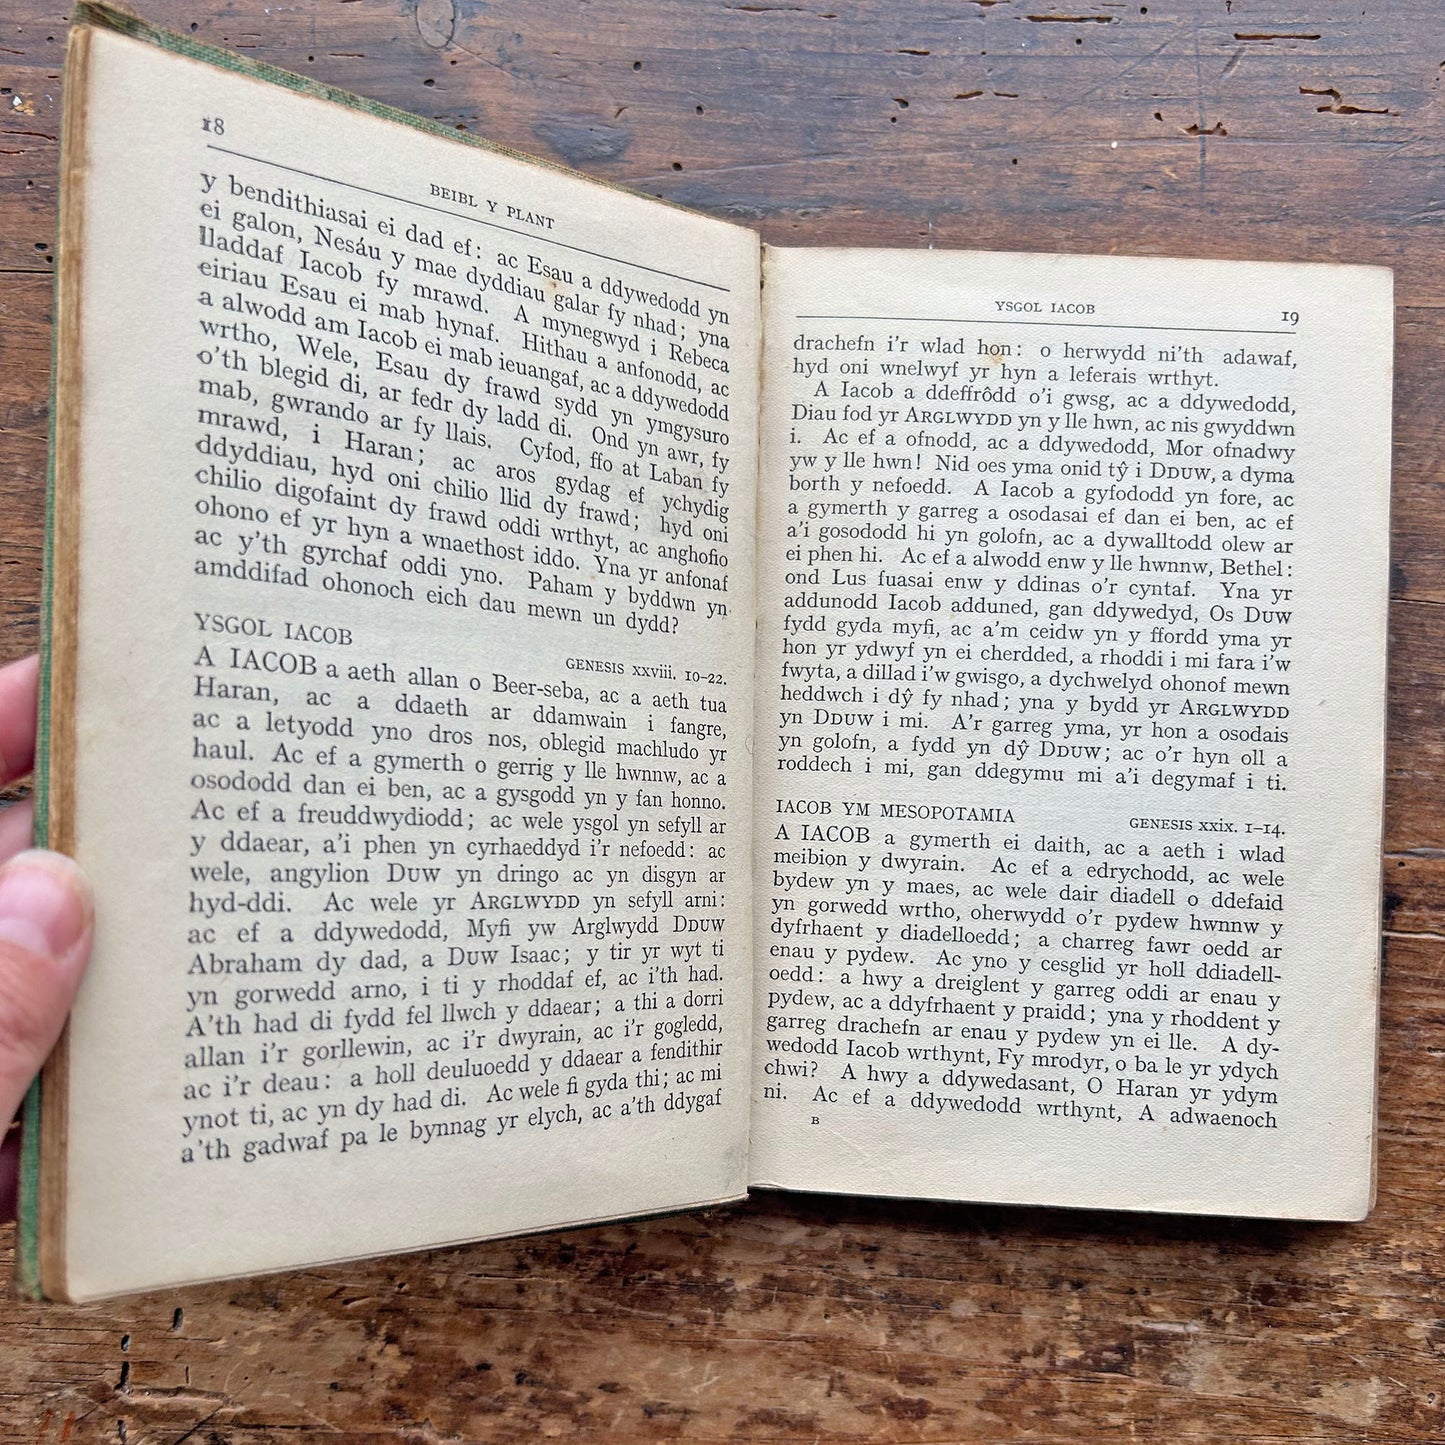 18
BEIBL Y PLANT
y bendithiasai ei dad ef: ac Esau a ddywedodd yn
ei galon, Nesáu y mae dyddiau galar fy nhad; yna
lladdaf Iacob fy mrawd. A mynegwyd i Rebeca
eiriau Esau ei mab hynaf. Hithau a anfonodd, ac
a alwodd am Iacob ei mab ieuangaf, ac a ddywedodd
wrtho, Wele, Esau dy frawd sydd yn ymgysuro
o'th blegid di, ar fedr dy ladd di. Ond yn awr, fy
mab, gwrando ar fy llais. Cyfod, ffo at Laban fy
mrawd, i Haran; ac aros gydag ef ychydig
ddyddiau, hyd oni chilio llid dy frawd; hyd oni
chilio digofaint dy frawd oddi wrthyt, ac anghofio
ohono ef yr hyn a wnaethost iddo. Yna yr anfonaf
ac y'th gyrchaf oddi yno. Paham y byddwn yn
amddifad ohonoch eich dau mewn un dydd?
YSGOL IACOB
GENESIS xxviii. 10–22.
A IACOB a aeth allan o Beer-seba, ac a aeth tua
Haran, ac a ddaeth ar ddamwain i fangre,
ac a letyodd yno dros nos, oblegid machludo yr
haul. Ac ef a gymerth o gerrig y lle hwnnw, ac a
osododd dan ei ben, ac a gysgodd yn y fan honno.
Ac ef a freuddwydiodd; ac wele ysgol yn sefyll ar
y ddaear, a'i phen yn cyrhaeddyd i'r nefoedd: ac
wele, angylion DUW yn dringo ac yn disgyn ar
hyd-ddi. Ac wele yr ARGLWYDD yn sefyll arni:
ac ef a ddywedodd, Myfi yw Arglwydd DDUW
Abraham dy dad, a DUW Isaac; y tir yr wyt ti
yn gorwedd arno, i ti y rhoddaf ef, ac i'th had.
A'th had di fydd fel llwch y ddaear; a thi a dorri
allan i'r gorllewin, ac i'r dwyrain, ac i'r gogledd,
ac i'r deau: a holl deuluoedd y ddaear a fendithir
ynot ti, ac yn dy had di. Ac wele fi gyda thi; ac mi
a'th gadwaf pa le bynnag yr elych, ac a'th ddygaf
YSGOL IACOB
19
drachefn i'r wlad hon: o herwydd ni'th adawaf,
hyd oni wnelwyf yr hyn a leferais wrthyt.
A Iacob a ddeffrôdd o'i gwsg, ac a ddywedodd,
Diau fod yr ARGLWYDD yn y lle hwn, ac nis gwyddwn
i. Ac ef a ofnodd, ac a ddywedodd, Mor ofnadwy
yw y lle hwn! Nid oes yma onid tŷ i DDUW, a dyma
borth y nefoedd. A Iacob a gyfododd yn fore, ac
a gymerth y garreg a osodasai ef dan ei ben, ac ef
a'i gosododd hi yn golofn, ac a dywalltodd olew ar
ei phen hi. Ac ef a alwodd enw y lle hwnnw, Bethel:
ond Lus fuasai enw y ddinas o'r cyntaf. Yna yr
addunodd Iacob adduned, gan ddywedyd, Os DUW
fydd gyda myfi, ac a'm ceidw yn y ffordd yma yr
hon yr ydwyf yn ei cherdded, a rhoddi i mi fara i'w
fwyta, a dillad i'w gwisgo, a dychwelyd ohonof mewn
heddwch i dŷ fy nhad; yna y bydd yr ARGLWYDD
yn DDUW i mi. A'r garreg yma, yr hon a osodais
yn golofn, a fydd yn dŷ DDUW; ac o'r hyn oll a
roddech i mi, gan ddegymu mi a'i degymaf i ti.
IACOB YM MESOPOTAMIA
GENESIS xxix. 1–14.
A IACOB a gymerth ei daith, ac a aeth i wlad
meibion y dwyrain. Ac ef a edrychodd, ac wele
bydew yn y maes, ac wele dair diadell o ddefaid
yn gorwedd wrtho, oherwydd o'r pydew hwnnw y
dyfrhaent y diadelloedd; a charreg fawr oedd ar
enau y pydew. Ac yno y cesglid yr holl ddiadell-
oedd: a hwy a dreiglent y garreg oddi ar enau y
pydew, ac a ddyfrhaent y praidd; yna y rhoddent y
garreg drachefn ar enau y pydew yn ei lle. A dy-
wedodd Iacob wrthynt, Fy mrodyr, o ba le yr ydych
chwi? A hwy a ddywedasant, O Haran yr ydym
ni. Ac ef a ddywedodd wrthynt, A adwaenoch
B